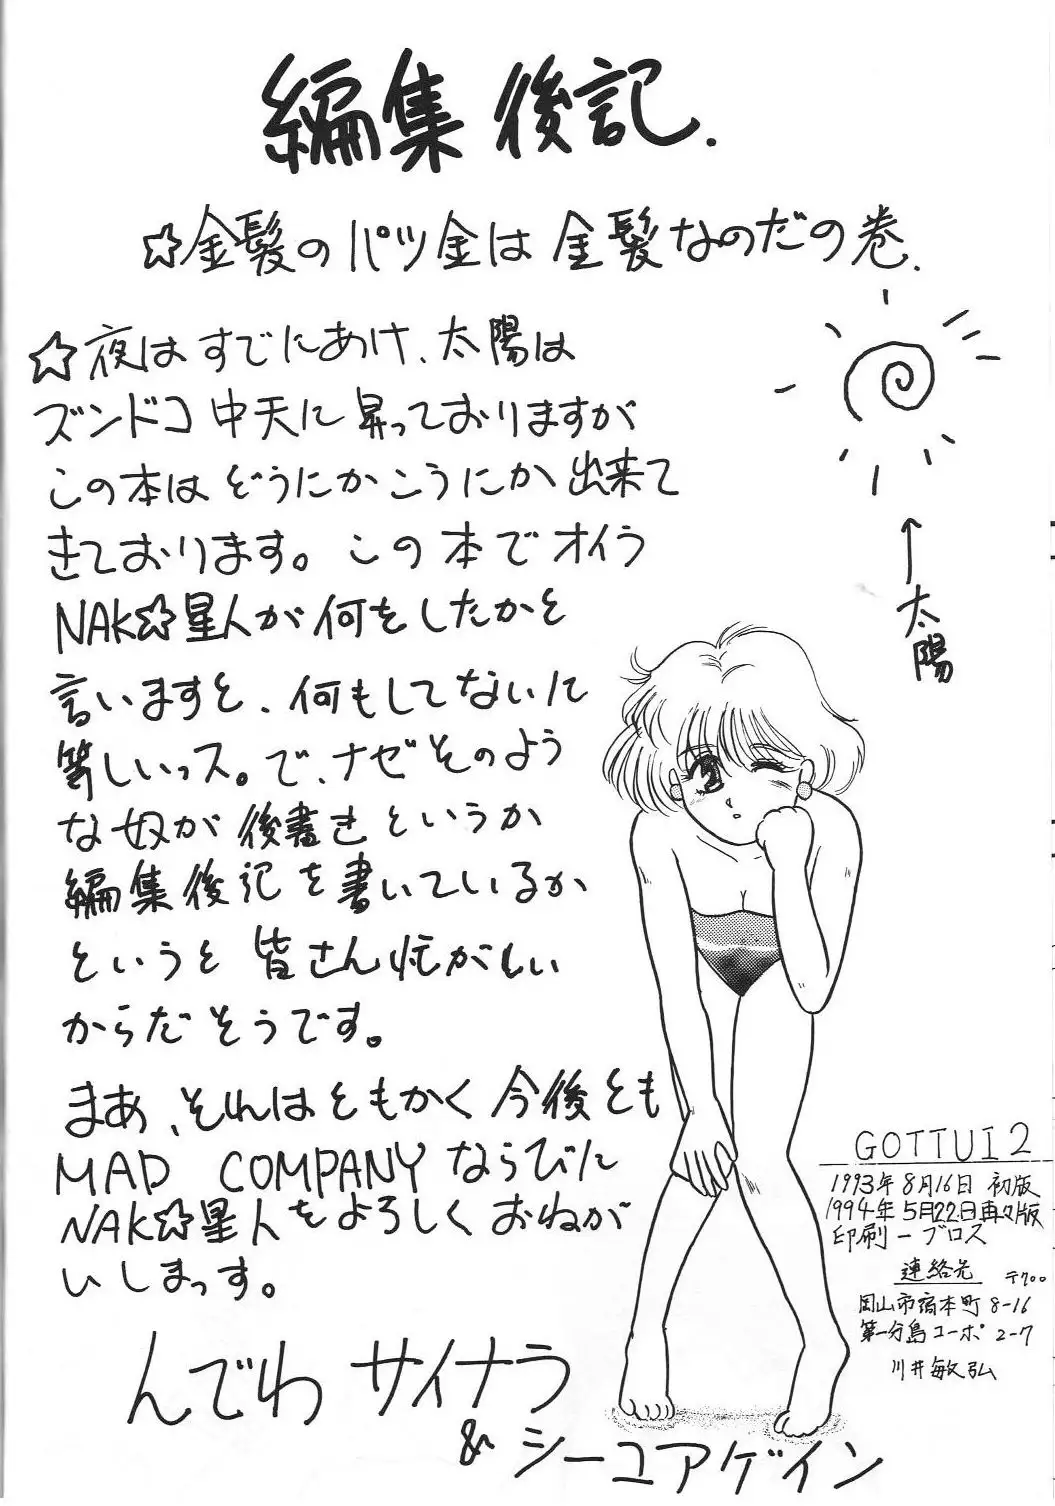 編集後記.
☆金髪のパツ金は金髪なのだの巻.
☆夜はすでにあけ、太陽は
ズンドコ中天に昇っておりますが
この本はどうにかこうにか出来て
きております。この本でオイラ
NAK☆星人が何をしたかを
言いますと、何もしてないに
等しいっス。で、ナゼそのよう
な奴が後書きというか
編集後記を書いているか
というと皆さん忙がしい
からだそうです。
まあ、それはともかく今後とも
MAD COMPANYならびに
NAK☆星人をよろしくおねが
いしまっす。
んでわ サイナラ
& シーユアゲイン
↑
太陽
GOTTUI2
1993年8月16日 初版
1994年5月22日再々版
印刷ーブロス
連絡先 〒700
岡山市宿本町8-16
第一分島コーポ 2-7
川井敏弘